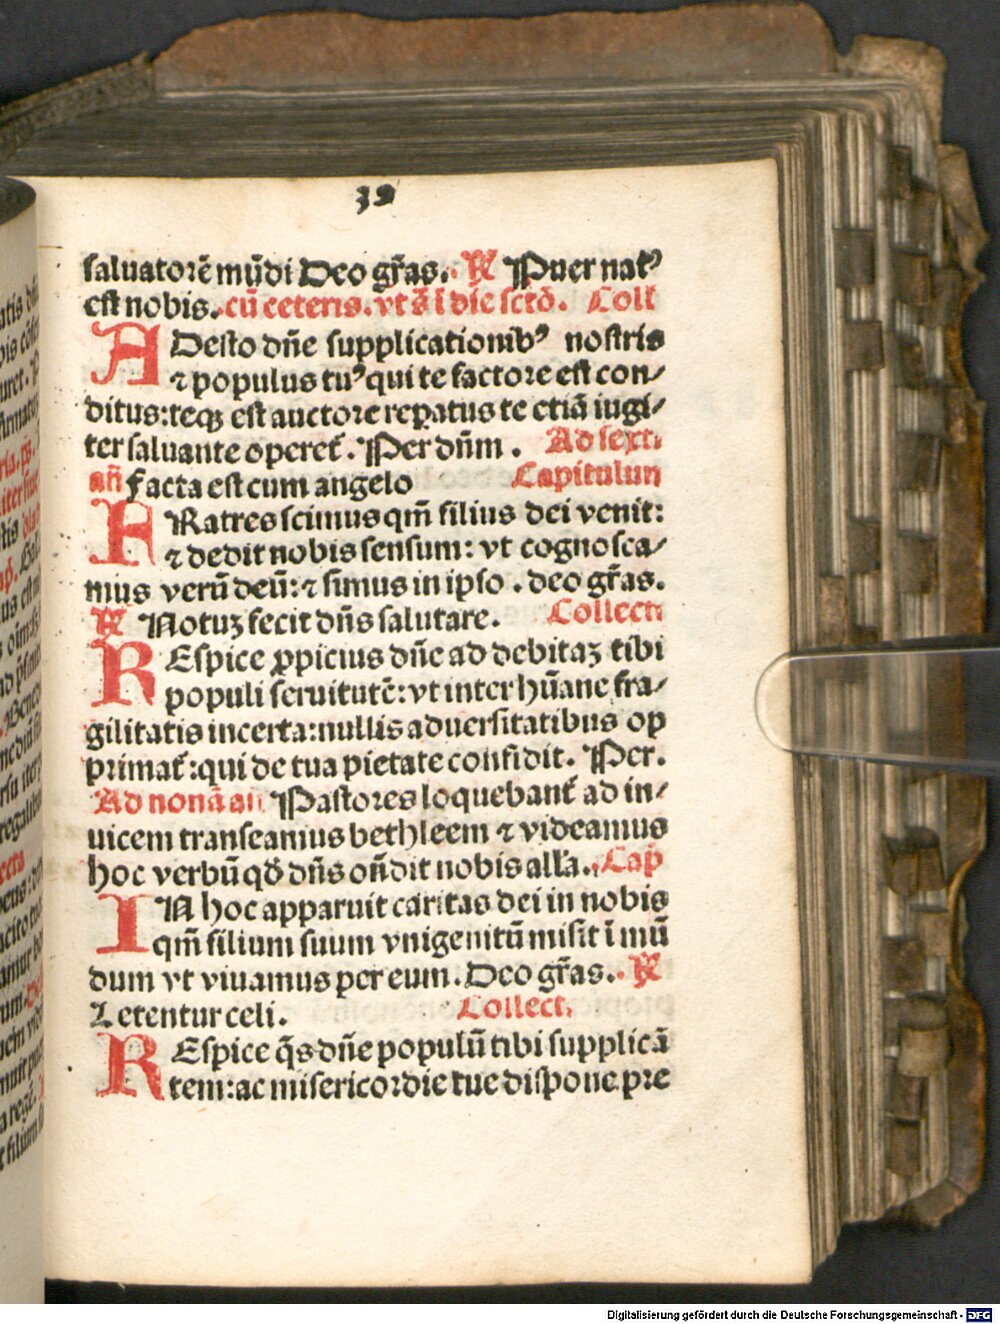 39
saluatorē mūdi Deo gr̄as. ℟ Puer natꝰ
est nobis. cū ceteris. vt ā ī die sctō. Coll̄
ADesto dn̄e supplicationibꝰ nostris
⁊ populus tuꝰ qui te factore est con⸗
ditus: teqꝫ est auctore reꝑatus te etiā iugi⸗
ter saluante operet᷑. Per dn̄m. Ad sext.
an̄ facta est cum angelo Capitulum
FRatres scimus qm̄ filius dei venit:
⁊ dedit nobis sensum: vt cognosca⸗
mus verū deū: ⁊ simus in ipso. deo gr̄as.
℟ Notuꝫ fecit dn̄s salutare. Collect.
REspice ꝓpicius dn̄e ad debitaꝫ tibi
populi seruitutē: vt inter hūane fra⸗
gilitatis incerta: nullis aduersitatibus op
primat᷑: qui de tua pietate confidit. Per.
Ad nonā an̄ Pastores loquebant᷑ ad in⸗
uicem transeamus bethleem ⁊ videamus
hoc verbū qd̄ dn̄s on̄dit nobis all'a. Cap̄
IN hoc apparuit caritas dei in nobis
qm̄ filium suum vnigenitū misit ī mū
dum vt viuamus per eum. Deo gr̄as. ℟
Letentur celi. Collect.
REspice q̄s dn̄e populū tibi supplicā
tem: ac misericordie tue dispone pre
Digitalisierung gefördert durch die Deutsche Forschungsgemeinschaft - DFG